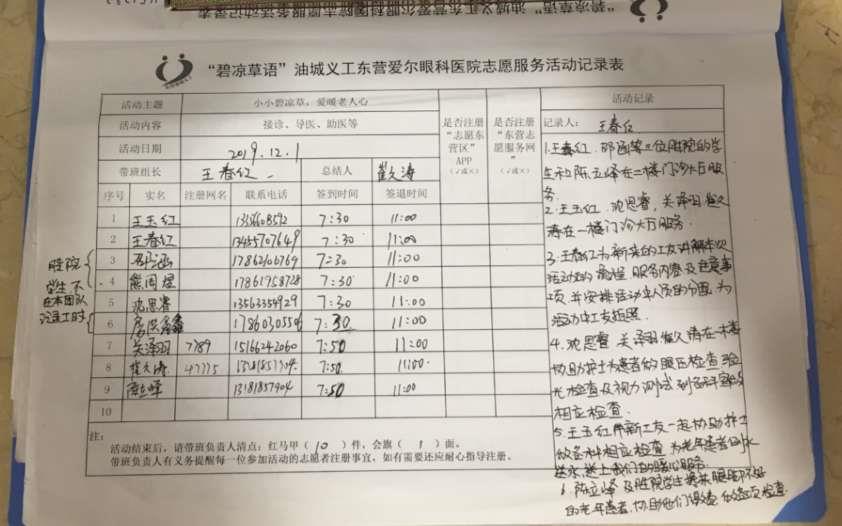 “碧凉草语”油城义工东营爱尔眼科医院志愿服务活动记录表
活动主题 小小碧凉草，爱暖老人心
活动内容 接诊、导医、助医等
活动日期 2019.12.1
带班组长 王春红 总结人 崔久涛
序号 实名 注册网名 联系电话 签到时间 签退时间
是否注册“志愿东营区”APP（√或×）
是否注册“东营志愿服务网”（√或×）
1 王玉红 7:30 11:00
2 王春红 13455707649 7:30 11:00
3 17862106769 7:30 11:00
4 熊同煜 17861958728 7:30 11:00
5 沈思睿 13563359929 7:30 11:00
6 1786030550 7:30 11:00
7 关泽羽 7789 15166242060 7:50 11:00
8 崔久涛 47775 7:50 11:00
9 陈立峰 13181857904 7:50 11:00
10
胜院
学生不
在本团队
记录工时
注：
活动结束后，请带班负责人清点：红马甲（10）件，会旗（1）面。
带班负责人有义务提醒每一位参加活动的志愿者注册事宜，如有需要还应耐心指导注册。
活动记录
记录人： 王春红
1.王春红、 三位胜院的学
生和陈立峰在二楼门诊大厅服
务
2.王玉红、沈思睿、关泽羽、崔久
涛在一楼门诊大厅服务.
3.王春红为新来的义工讲解本次
活动的流程、服务内容及注意事
项,并安排活动中人员的分配,为
活动中义工拍照.
4.沈思睿 关泽羽 崔久涛在一楼
协助护士为患者的眼压检查 验
光检查及视力测试 到各科室做
相应检查.
5.王玉红和新义工一起协助护士
做各种相应检查 为老年患者倒水
送水,送上我们的暖心服务.
6.陈立峰及胜院学生搀扶腿脚不好
的老年患者,协助他们 检查